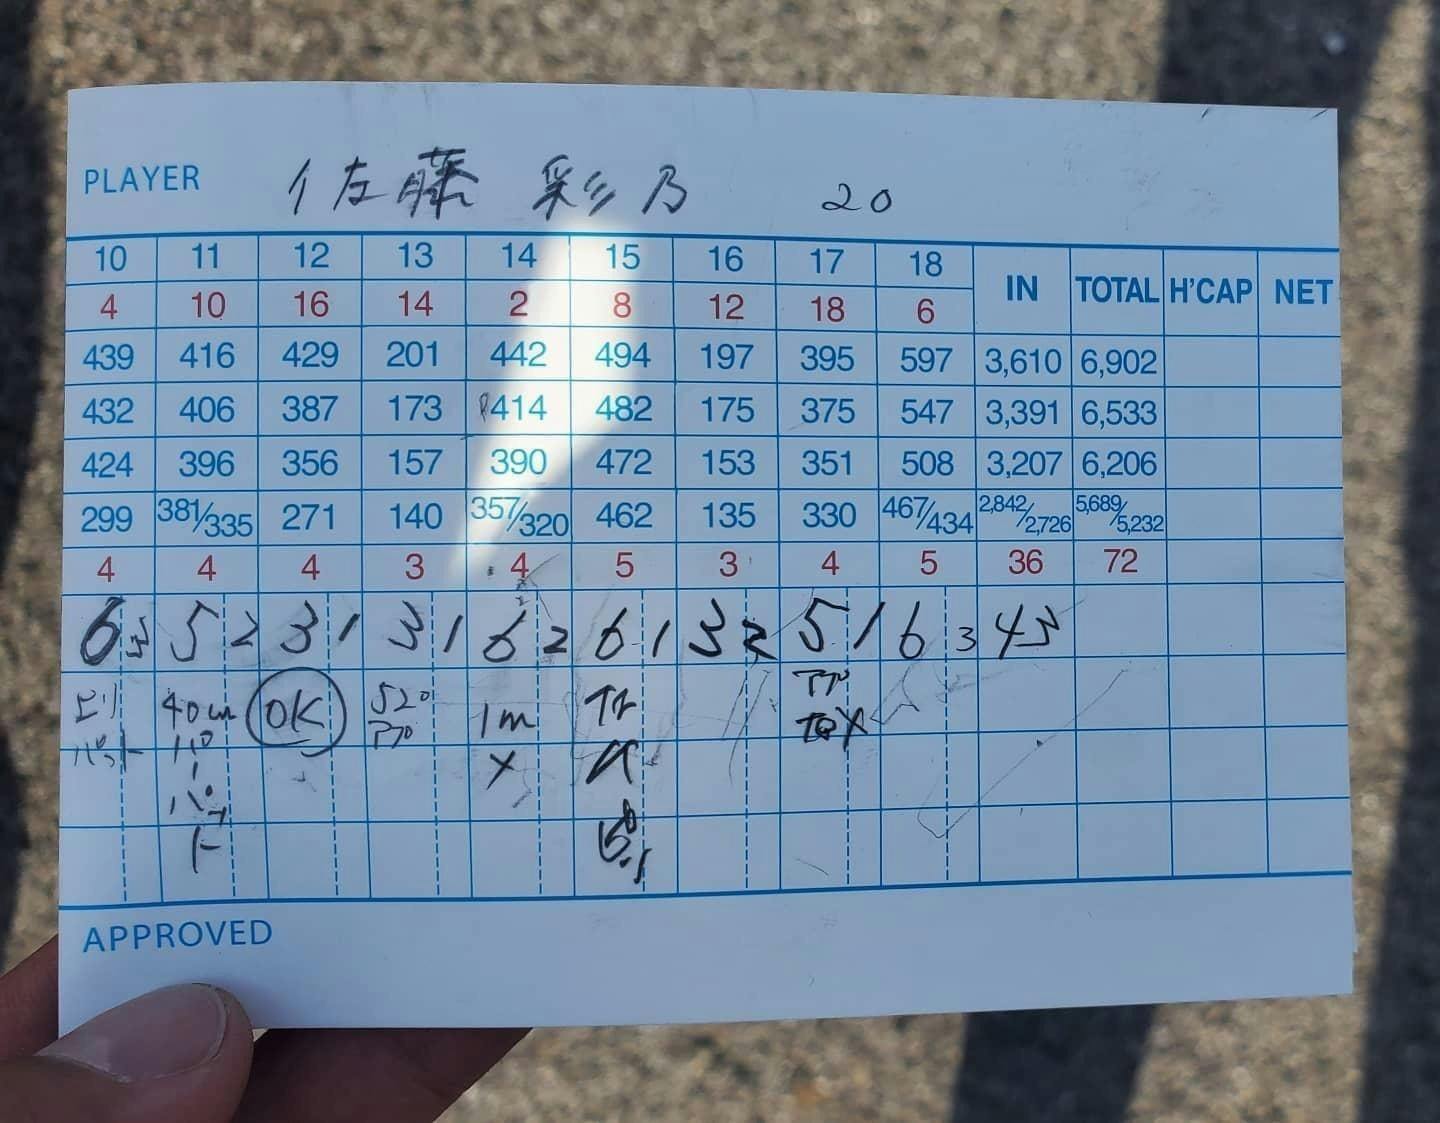 PLAYER 佐藤 彩乃 20
10 11 12 13 14 15 16 17 18 IN TOTAL H'CAP NET
4 10 16 14 2 8 12 18 6
439 416 429 201 442 494 197 395 597 3,610 6,902
432 406 387 173 414 482 175 375 547 3,391 6,533
424 396 356 157 390 472 153 351 508 3,207 6,206
299 381/335 271 140 357/320 462 135 330 467/434 2,842/2,726 5,689/5,232
4 4 4 3 4 5 3 4 5 36 72
6 3 5 2 3 1 3 1 6 2 6 1 3 2 5 1 6 3 43
40cm OK 52° 1m
パーパット X
APPROVED